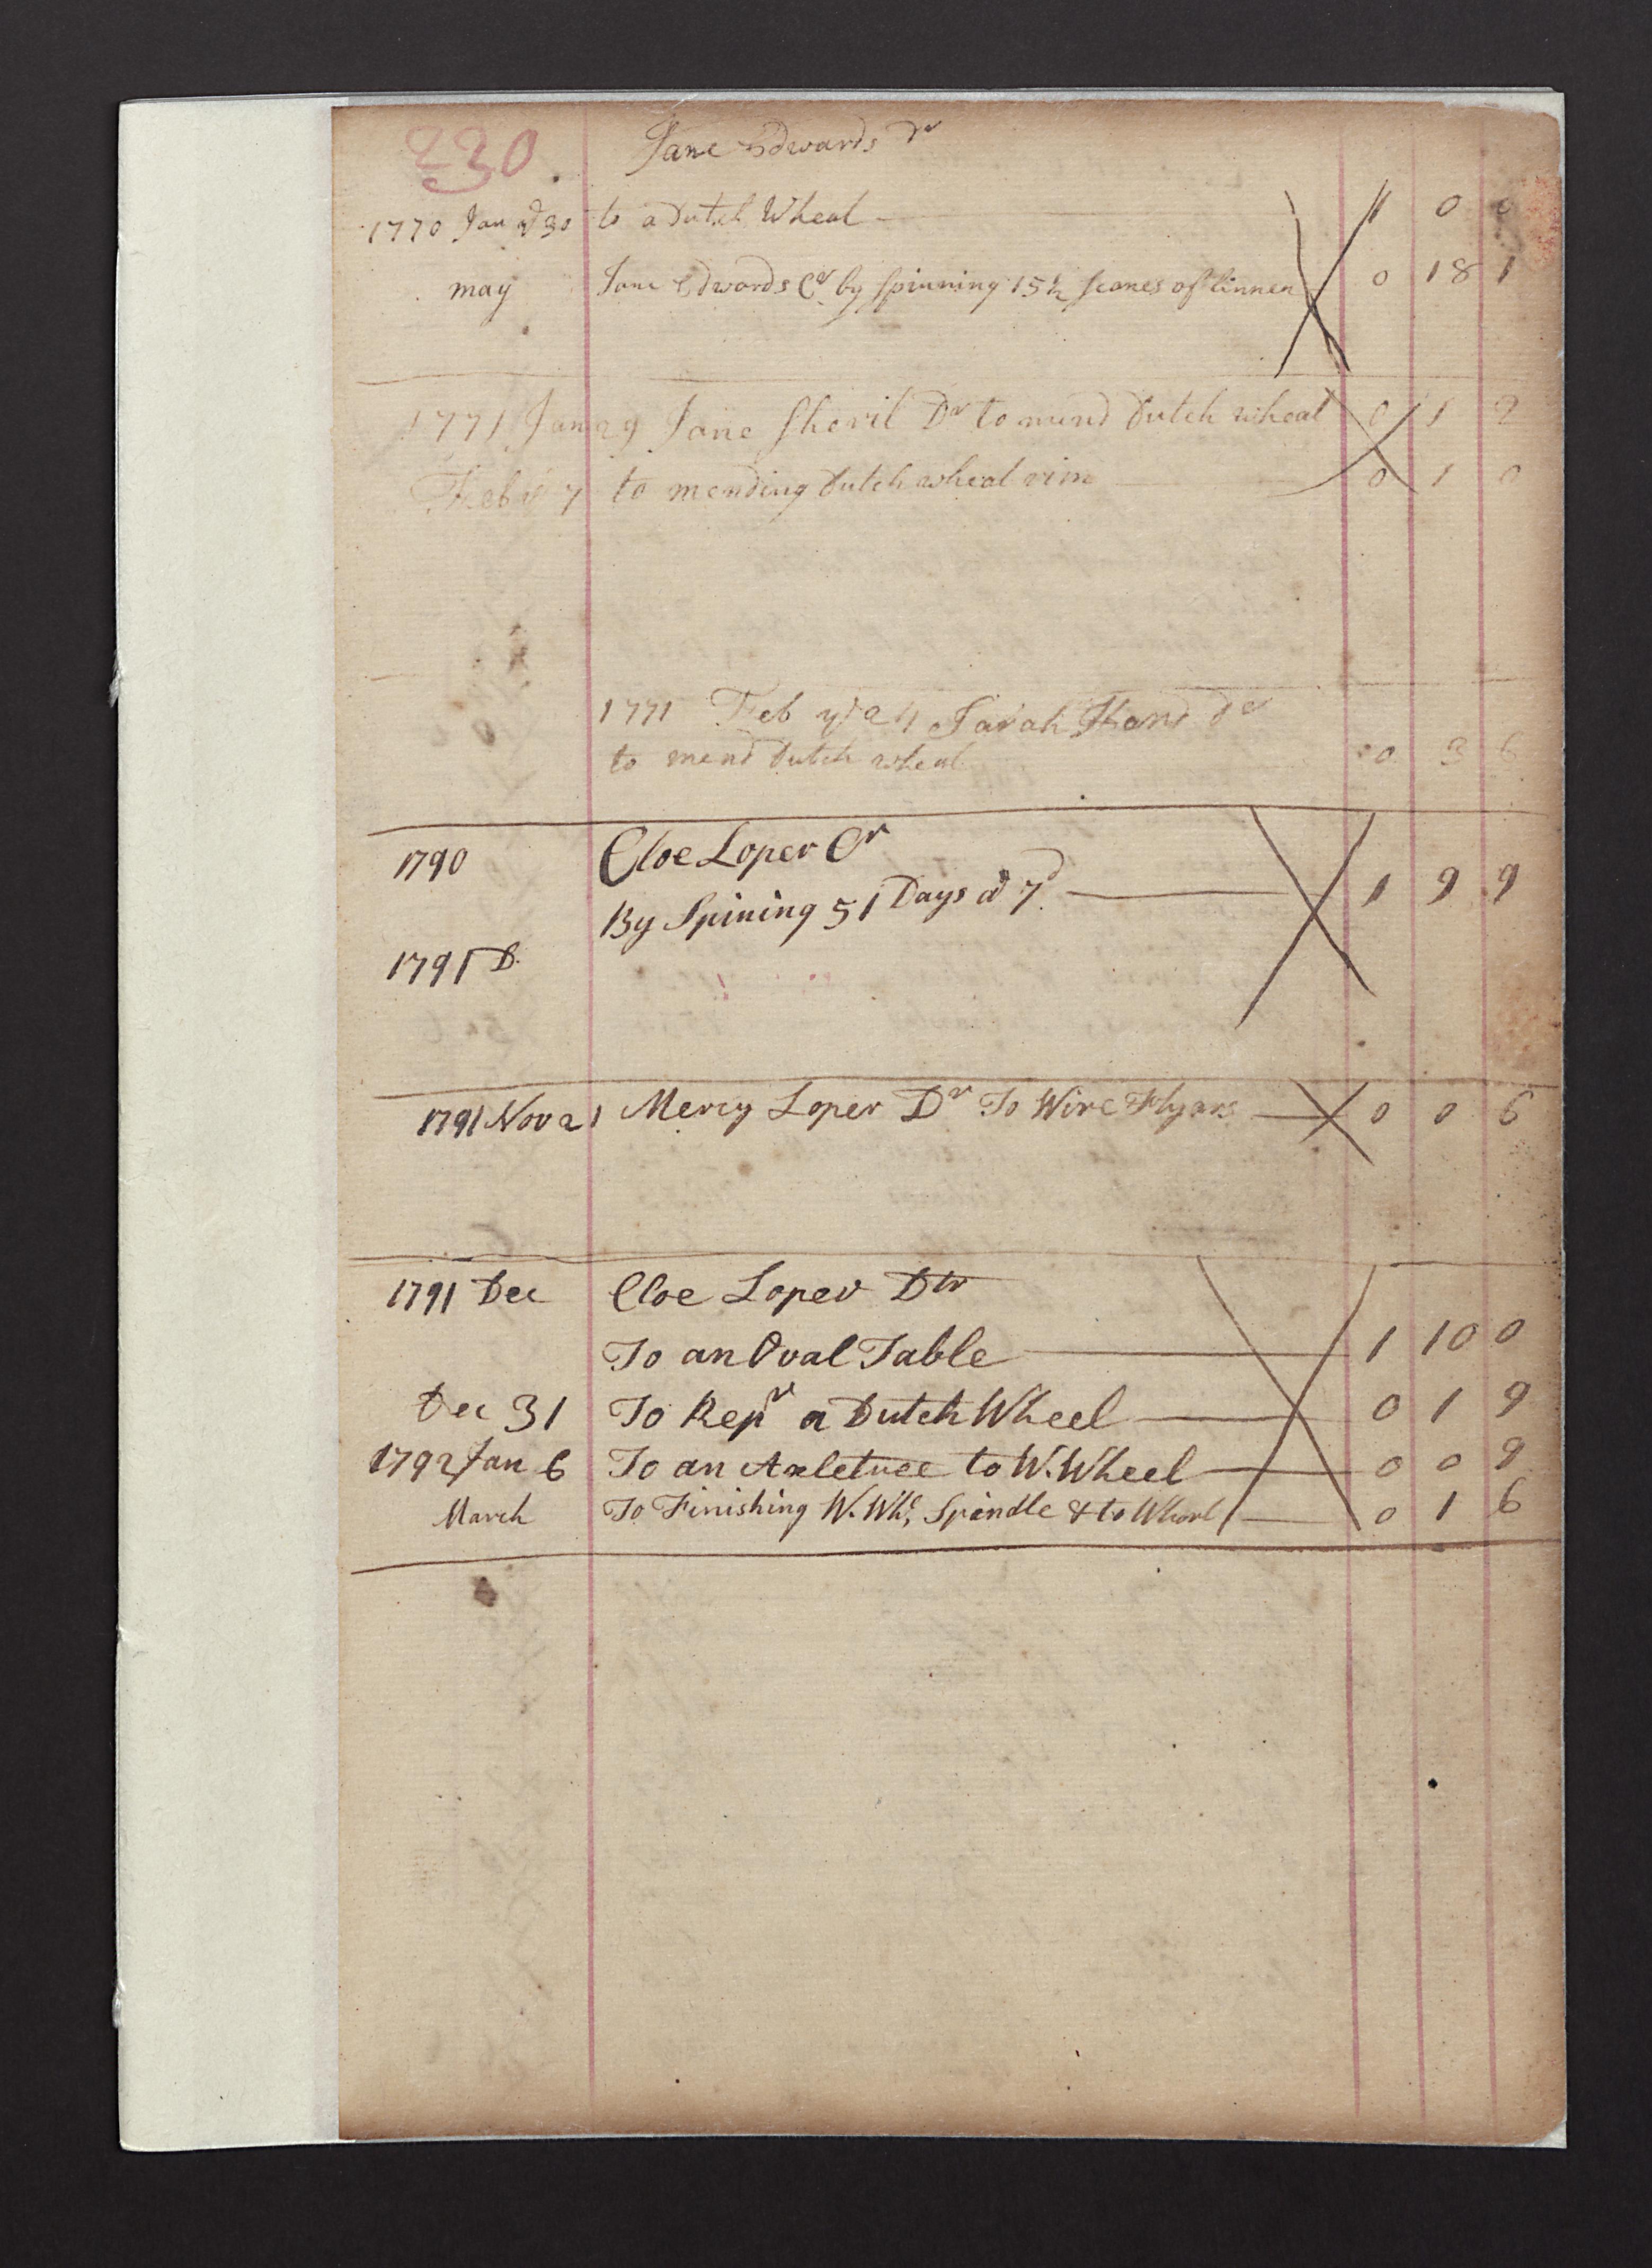 230 Jane Edwards Dr
1770 Jan ye 30 to a Dutch Wheal 1 0 0
may Jane Edwards Cr by spinning 15½ scanes of linnen 0 18 1
1771 Jan 29 Jane Sheril Dr to mend Dutch wheal 0 1 2
Feb ye 7 to mending Dutch wheal rim 0 1 0
1771 Feb ye 24 Sarah Hand Dr
to mend Dutch wheal 0 3 6
1790 Cloe Loper Cr
By Spining 51 Days @ 7d 1 9 9
1791 D.
1791 Nov 21 Mercy Loper Dr To Wire Flyars 0 0 6
1791 Dec Cloe Loper Dtr
To an Oval Table 1 10 0
Dec 31 To Repr a Dutch Wheel 0 1 9
1792 Jan 6 To an Axletree to W. Wheel 0 0 9
March To Finishing W. Whl, Spindle & to Whorl 0 1 6